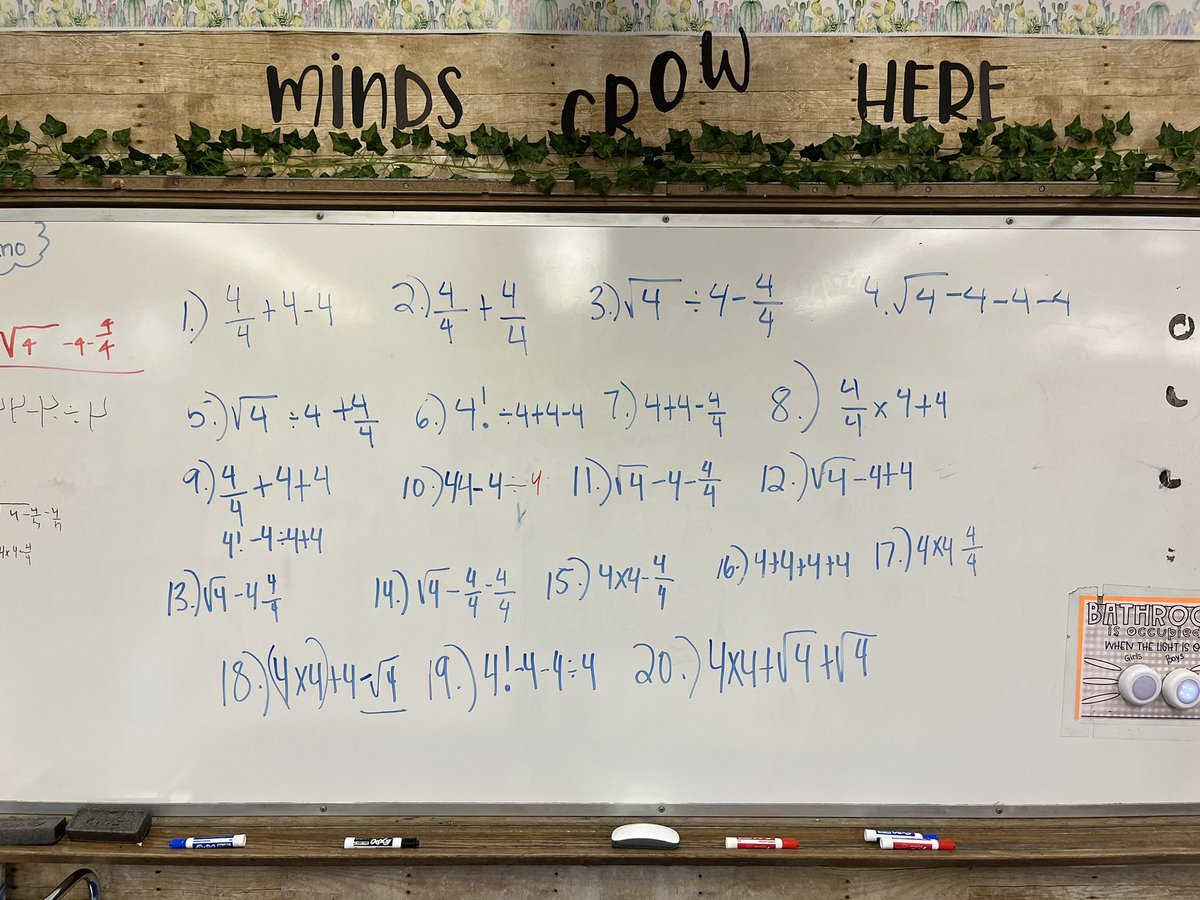 MINDS GROW HERE
no
1.) 4/4 + 4 - 4 2.) 4/4 + 4/4 3.) √4 ÷ 4 - 4/4 4. √4 - 4 - 4 - 4
√4 - 4 - 4/4
5.) √4 ÷ 4 + 4/4 6.) 4! ÷ 4 + 4 - 4 7.) 4 + 4 - 4/4 8.) 4/4 × 4 + 4
9.) 4/4 + 4 + 4 10.) 44 - 4 ÷ 4 11.) √4 - 4 - 4/4 12.) √4 - 4 + 4
4! - 4 ÷ 4 + 4
4 × 4 - 4/4
13.) √4 - 4 4/4 14.) √4 - 4/4 - 4/4 15.) 4 × 4 - 4/4 16.) 4 + 4 + 4 + 4 17.) 4 × 4 4/4
18.) (4 × 4) + 4 - √4 19.) 4! - 4 - 4 ÷ 4 20.) 4 × 4 + √4 + √4
BATHROO
is occupied
WHEN THE LIGHT IS O
Girls Boys